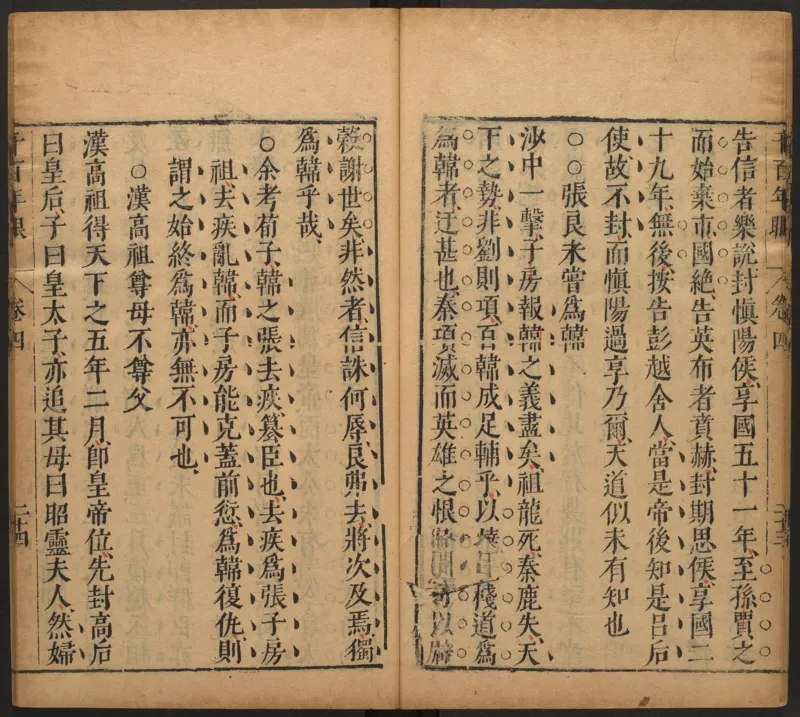 千百年眼 卷四 二十三
告信者樂說封慎陽侯享國五十一年至孫賈之
而始棄市國絕告英布者賁赫封期思侯享國二
十九年無後按告彭越舍人當是帝後知是呂后
使故不封而慎陽過享乃爾天道似未有知也
○○張良未嘗爲韓
沙中一擊子房報韓之義盡矣祖龍死秦鹿失天
下之勢非劉則項百韓成足輔乎以燒絕棧道爲
爲韓者迂甚也秦項滅而英雄之恨以辟
穀謝世矣非然者信誅何辱良弗去將次及焉獨
爲韓乎哉
○余考荀子韓之張去疾簒臣也去疾爲張子房
祖去疾亂韓而子房能克蓋前愆爲韓復仇則
謂之始終爲韓亦無不可也
○漢高祖尊母不尊父
漢高祖得天下之五年二月卽皇帝位先封高后
曰皇后子曰皇太子亦追其母曰昭靈夫人然婦
千百年眼 卷四 二十四